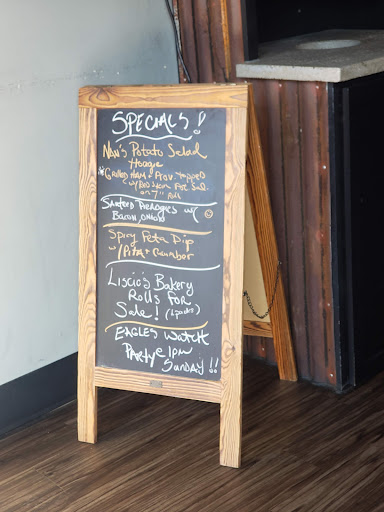 SPECIALS!
Nan's Potato Salad
Hoagie
*Grilled Ham & Prov. topped
w/ Bod Ham Pot Sal
on 7" Roll
Sauteed Pierogies w/
Bacon, onion
Spicy Feta Dip
w/ Pita & Cucumber
Liscio's Bakery
Rolls For
Sale! (4 packs)
EAGLES Watch
Party @ 1pm
Sunday!!